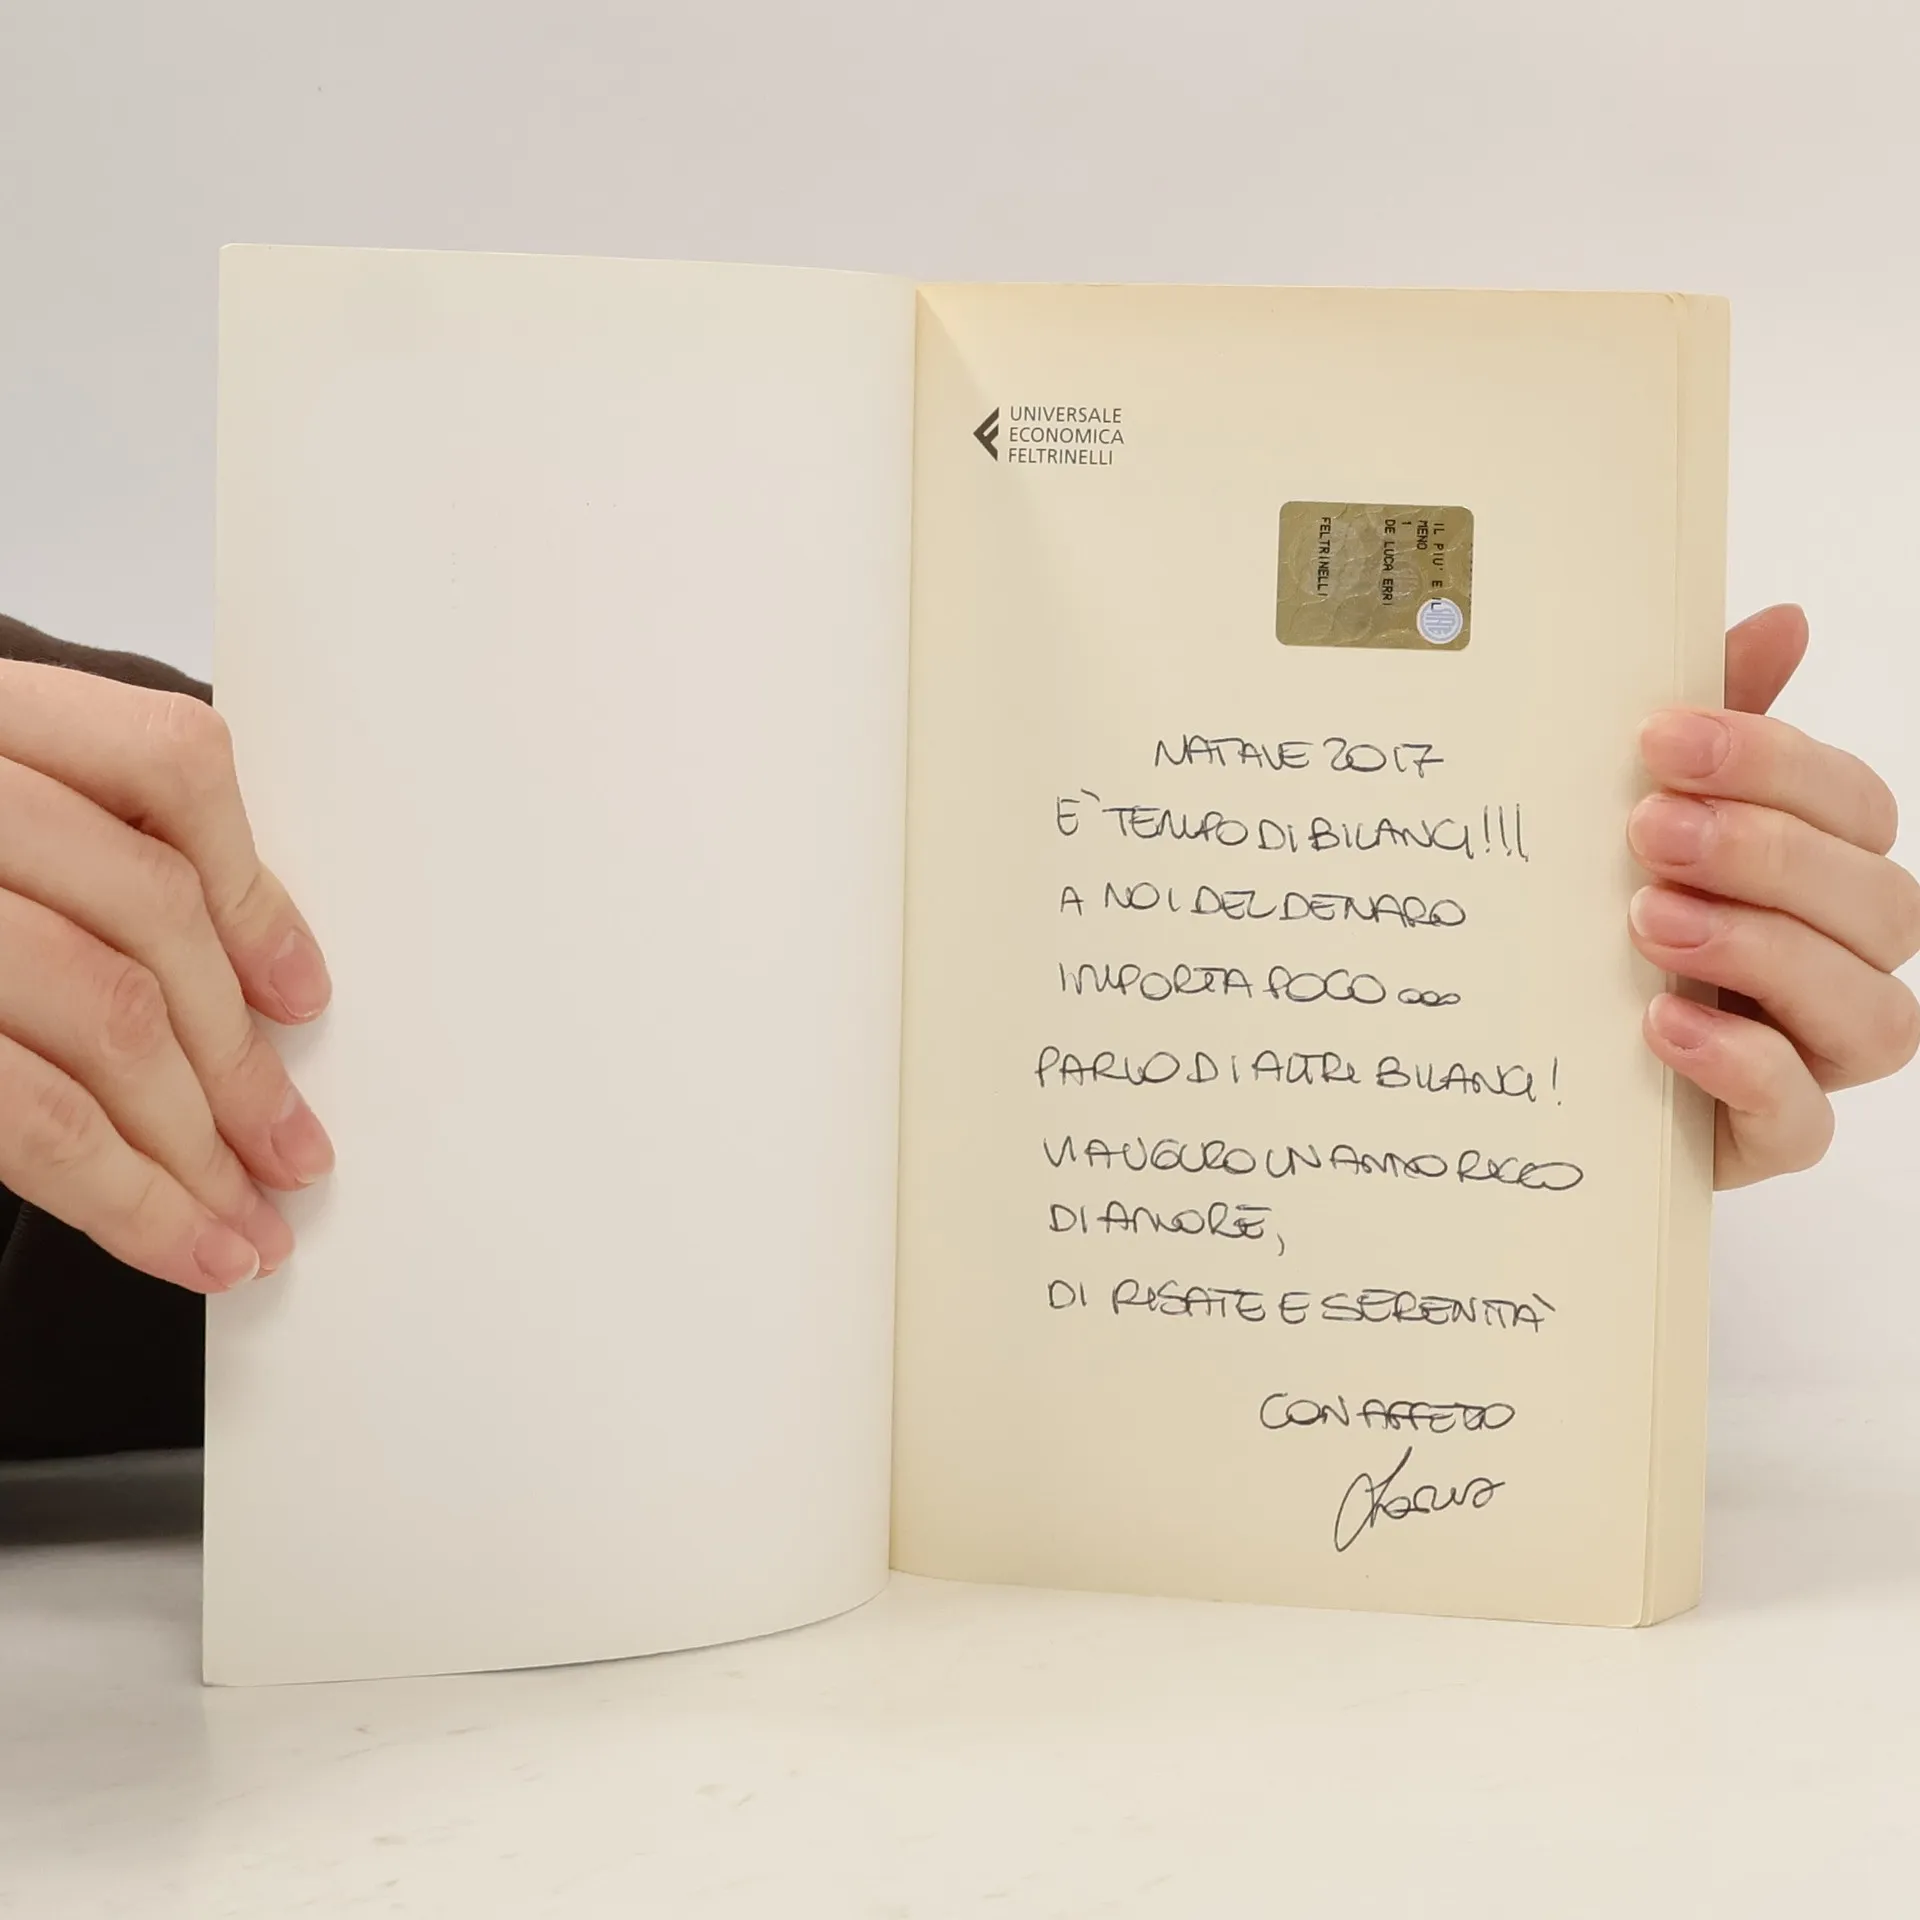 UNIVERSALE
ECONOMICA
FELTRINELLI
IL PIU' E IL
MENO
1
DE LUCA ERRI
FELTRINELLI
NATALE 2017
E' TEMPO DI BILANCI!!!
A NOI DEL DENARO
IMPORTA POCO ...
PARLO DI ALTRI BILANCI!
VI AUGURO UN ANNO RICCO
DI AMORE,
DI RISATE E SERENITÀ
CON AFFETTO